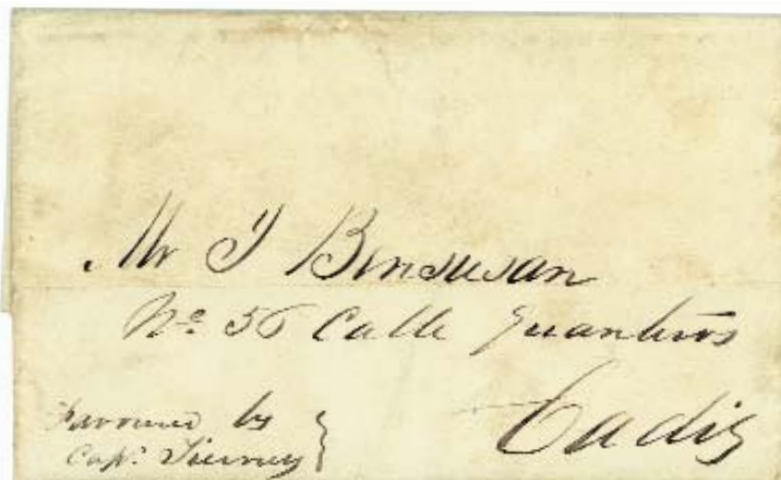 Mr J Bensusan
No. 56 Calle Guanteros
Cadiz
Favoured by
Capn. Tierney